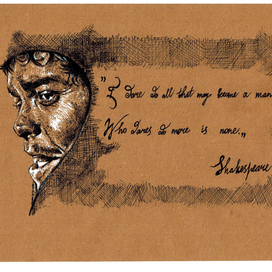 „I dare do all that may become a man
Who dares do more is none„
Shakespeare